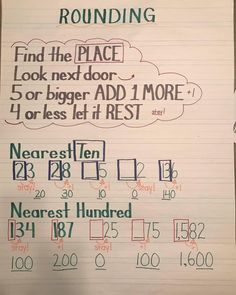 ROUNDING
Find the PLACE
Look next door
5 or bigger ADD 1 MORE +1
4 or less let it REST stay!
Nearest Ten
23 28 5 2 136
stay! +1 +1 stay! +1
20 30 10 0 140
Nearest Hundred
134 187 25 75 1,582
stay! +1 stay! +1 +1
100 200 0 100 1,600